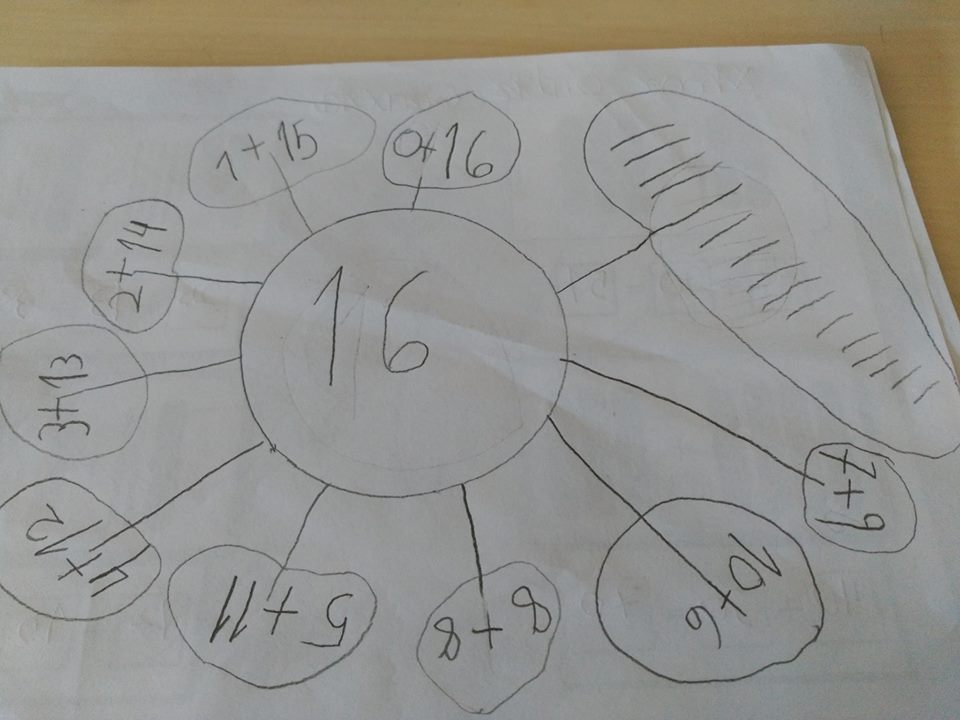 16
0+16
1+15
2+14
3+13
4+12
5+11
8+8
10+6
7+9